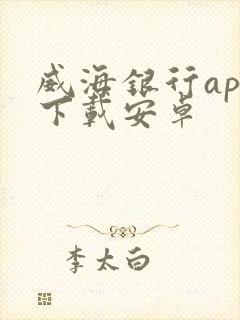 威海银行ap
下载安卓
李太白